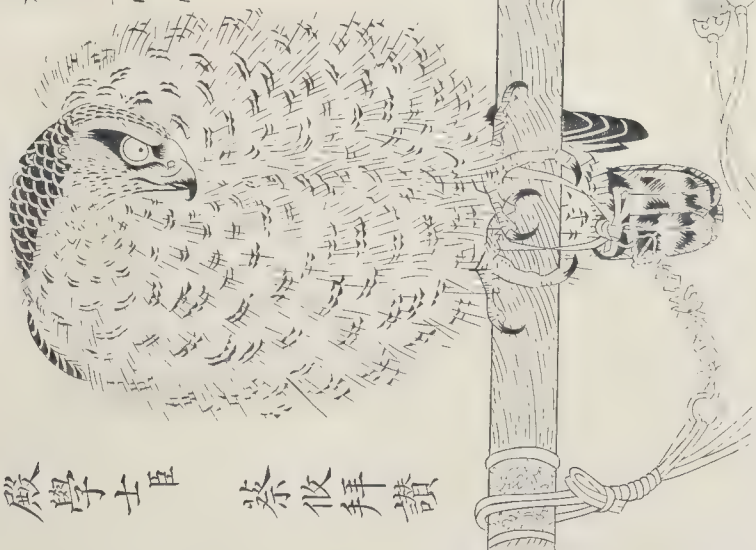 殿學士臣　蔡攸拜讚